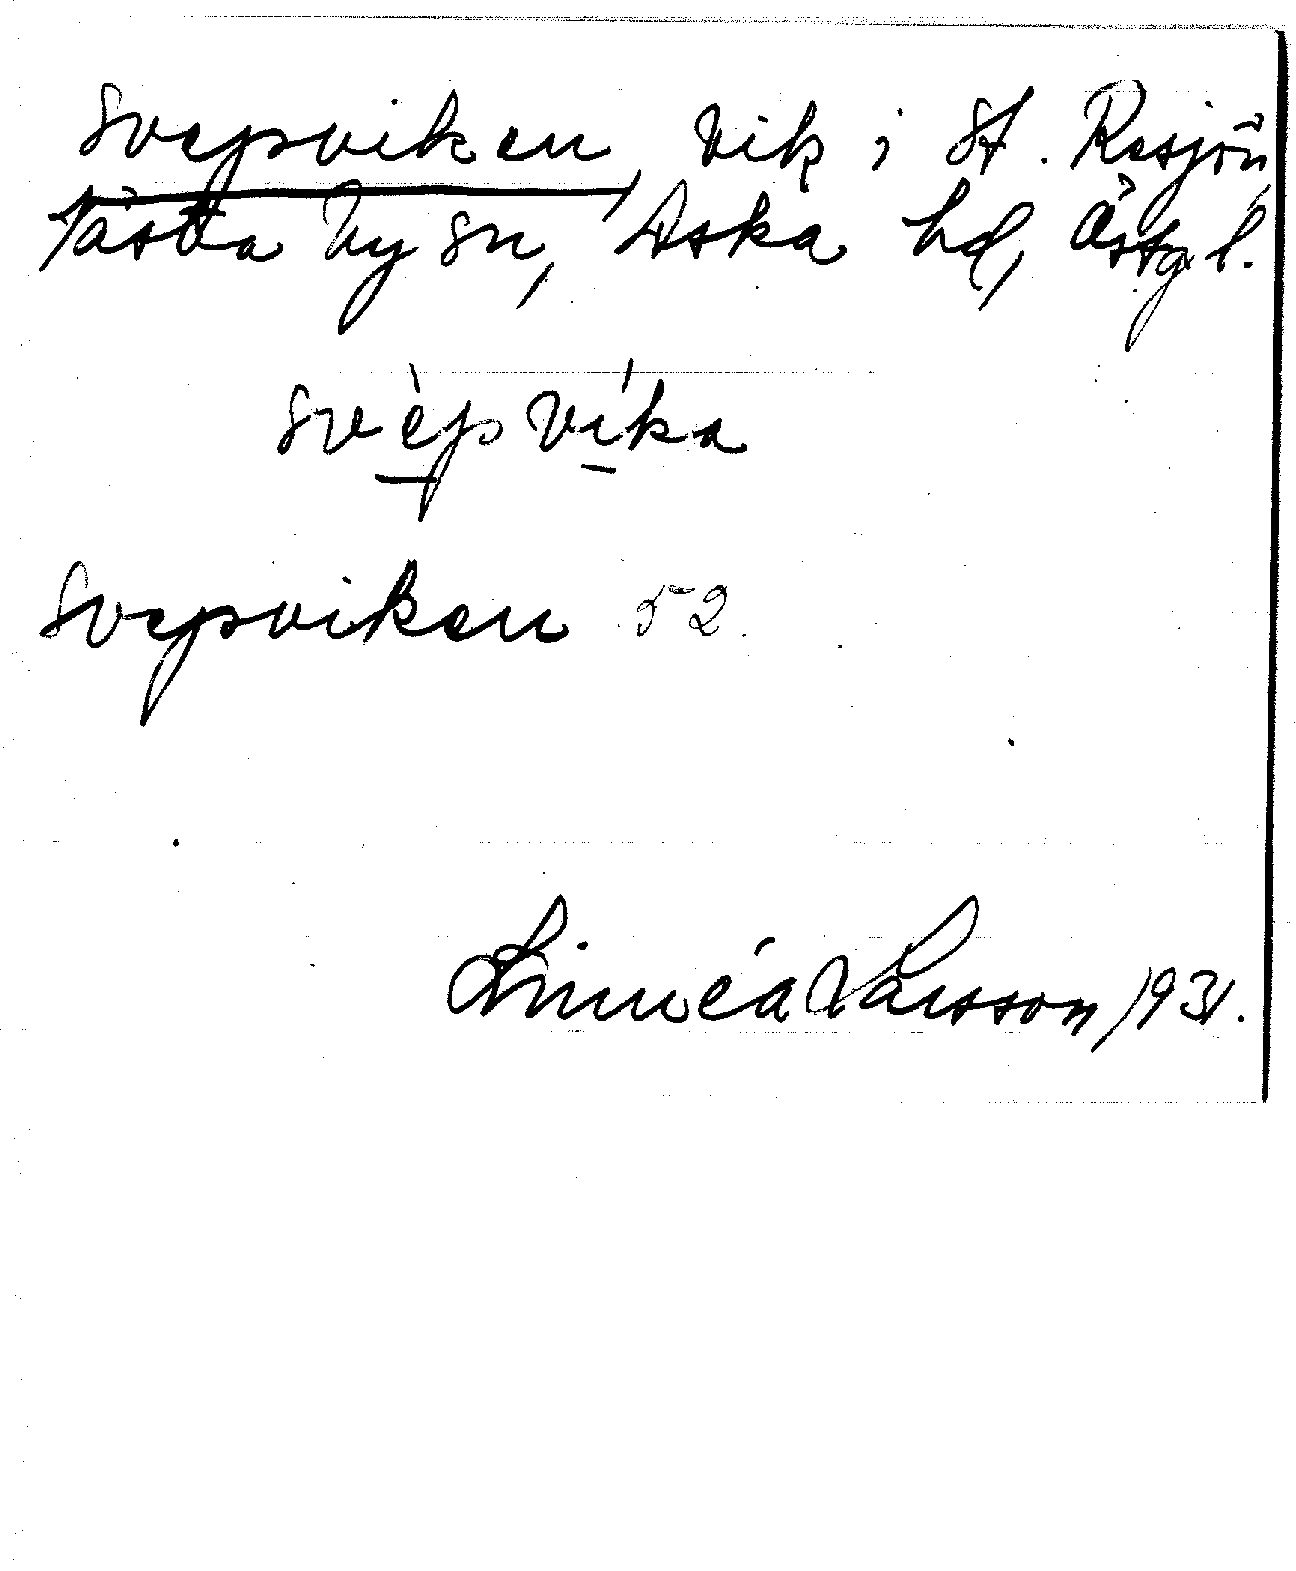 Svepviken, vik i St. Resjön,
Västra Ny sn, Aska hd, Östgl.
svèpvíka
Svepviken 52
Linnéa Larsson, 1931.